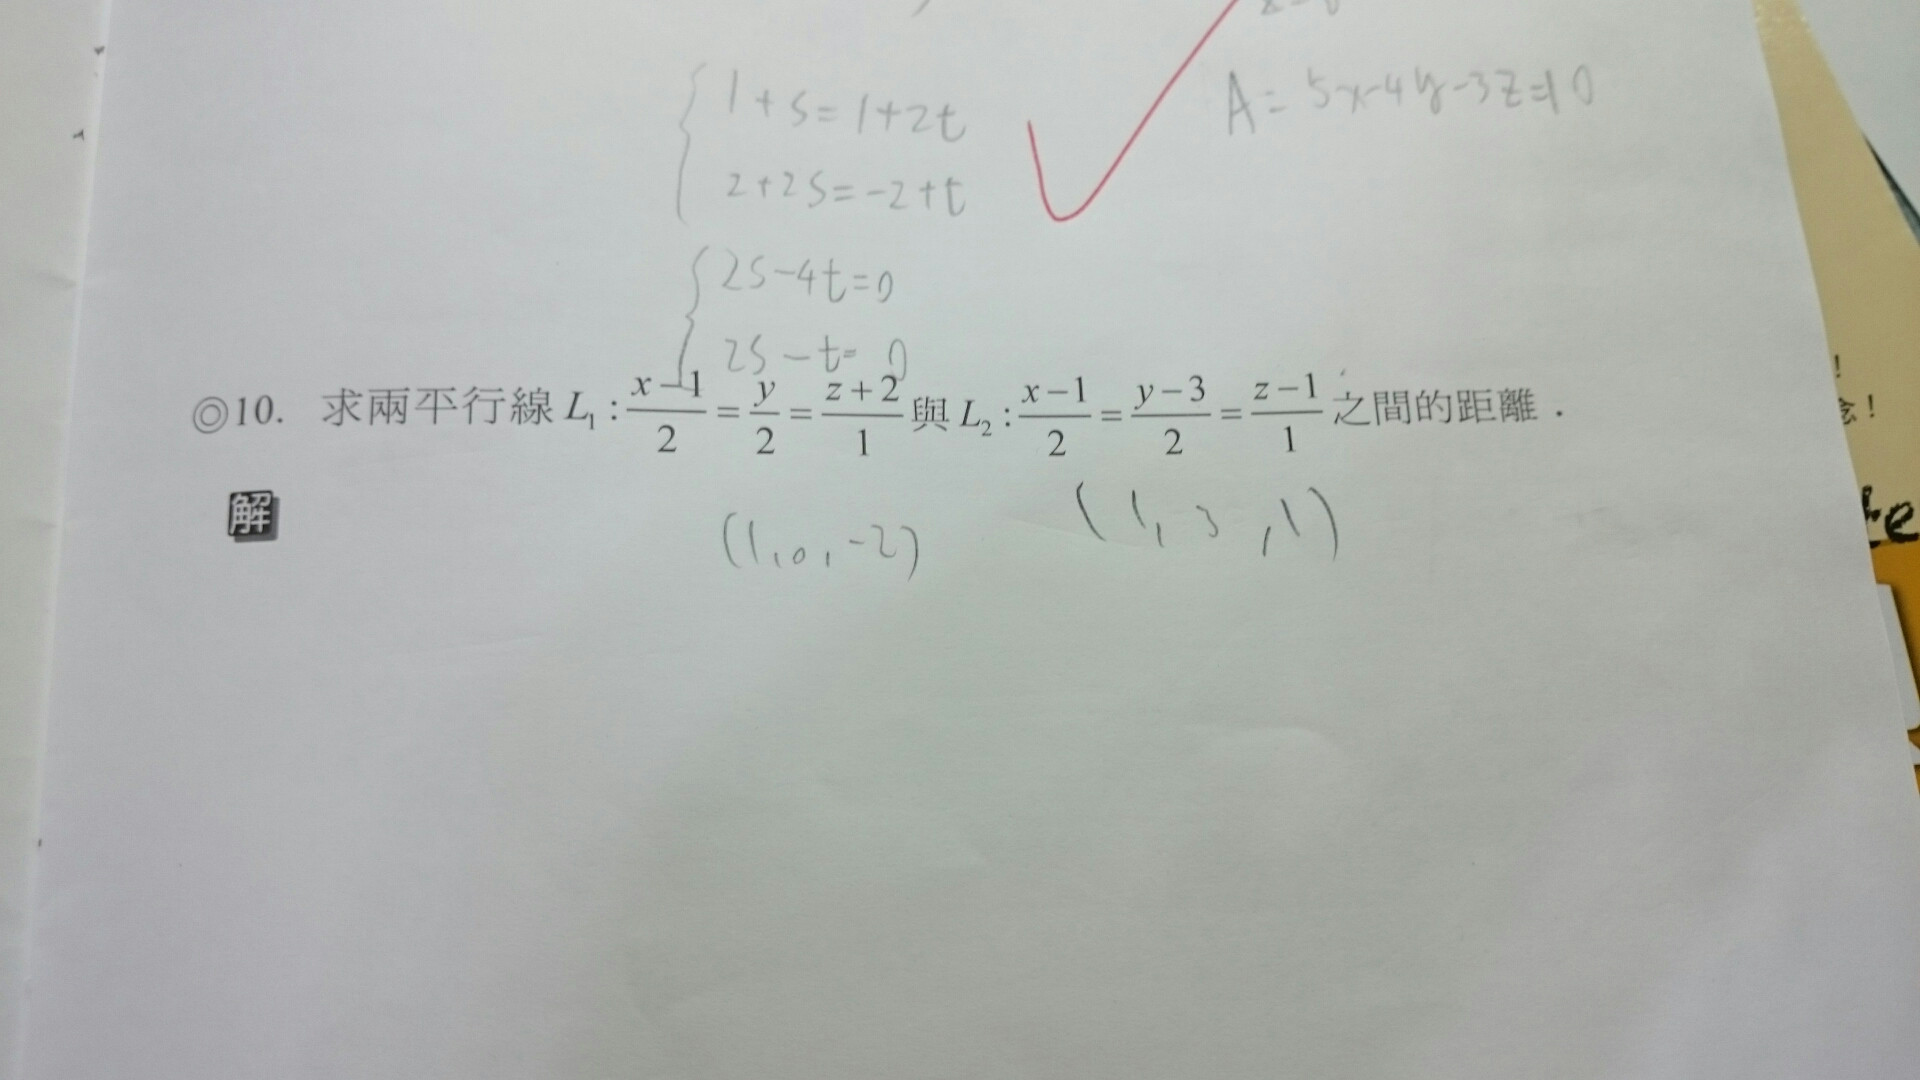 1+s=1+2t
A=5x-4y-3z=10
2+2s=-2+t
2s-4t=0
2s-t=0
◎10. 求兩平行線 L₁:\frac{x-1}{2}=\frac{y}{2}=\frac{z+2}{1} 與 L₂:\frac{x-1}{2}=\frac{y-3}{2}=\frac{z-1}{1} 之間的距離.
解
(1,0,-2)
(1,3,1)
!
念!